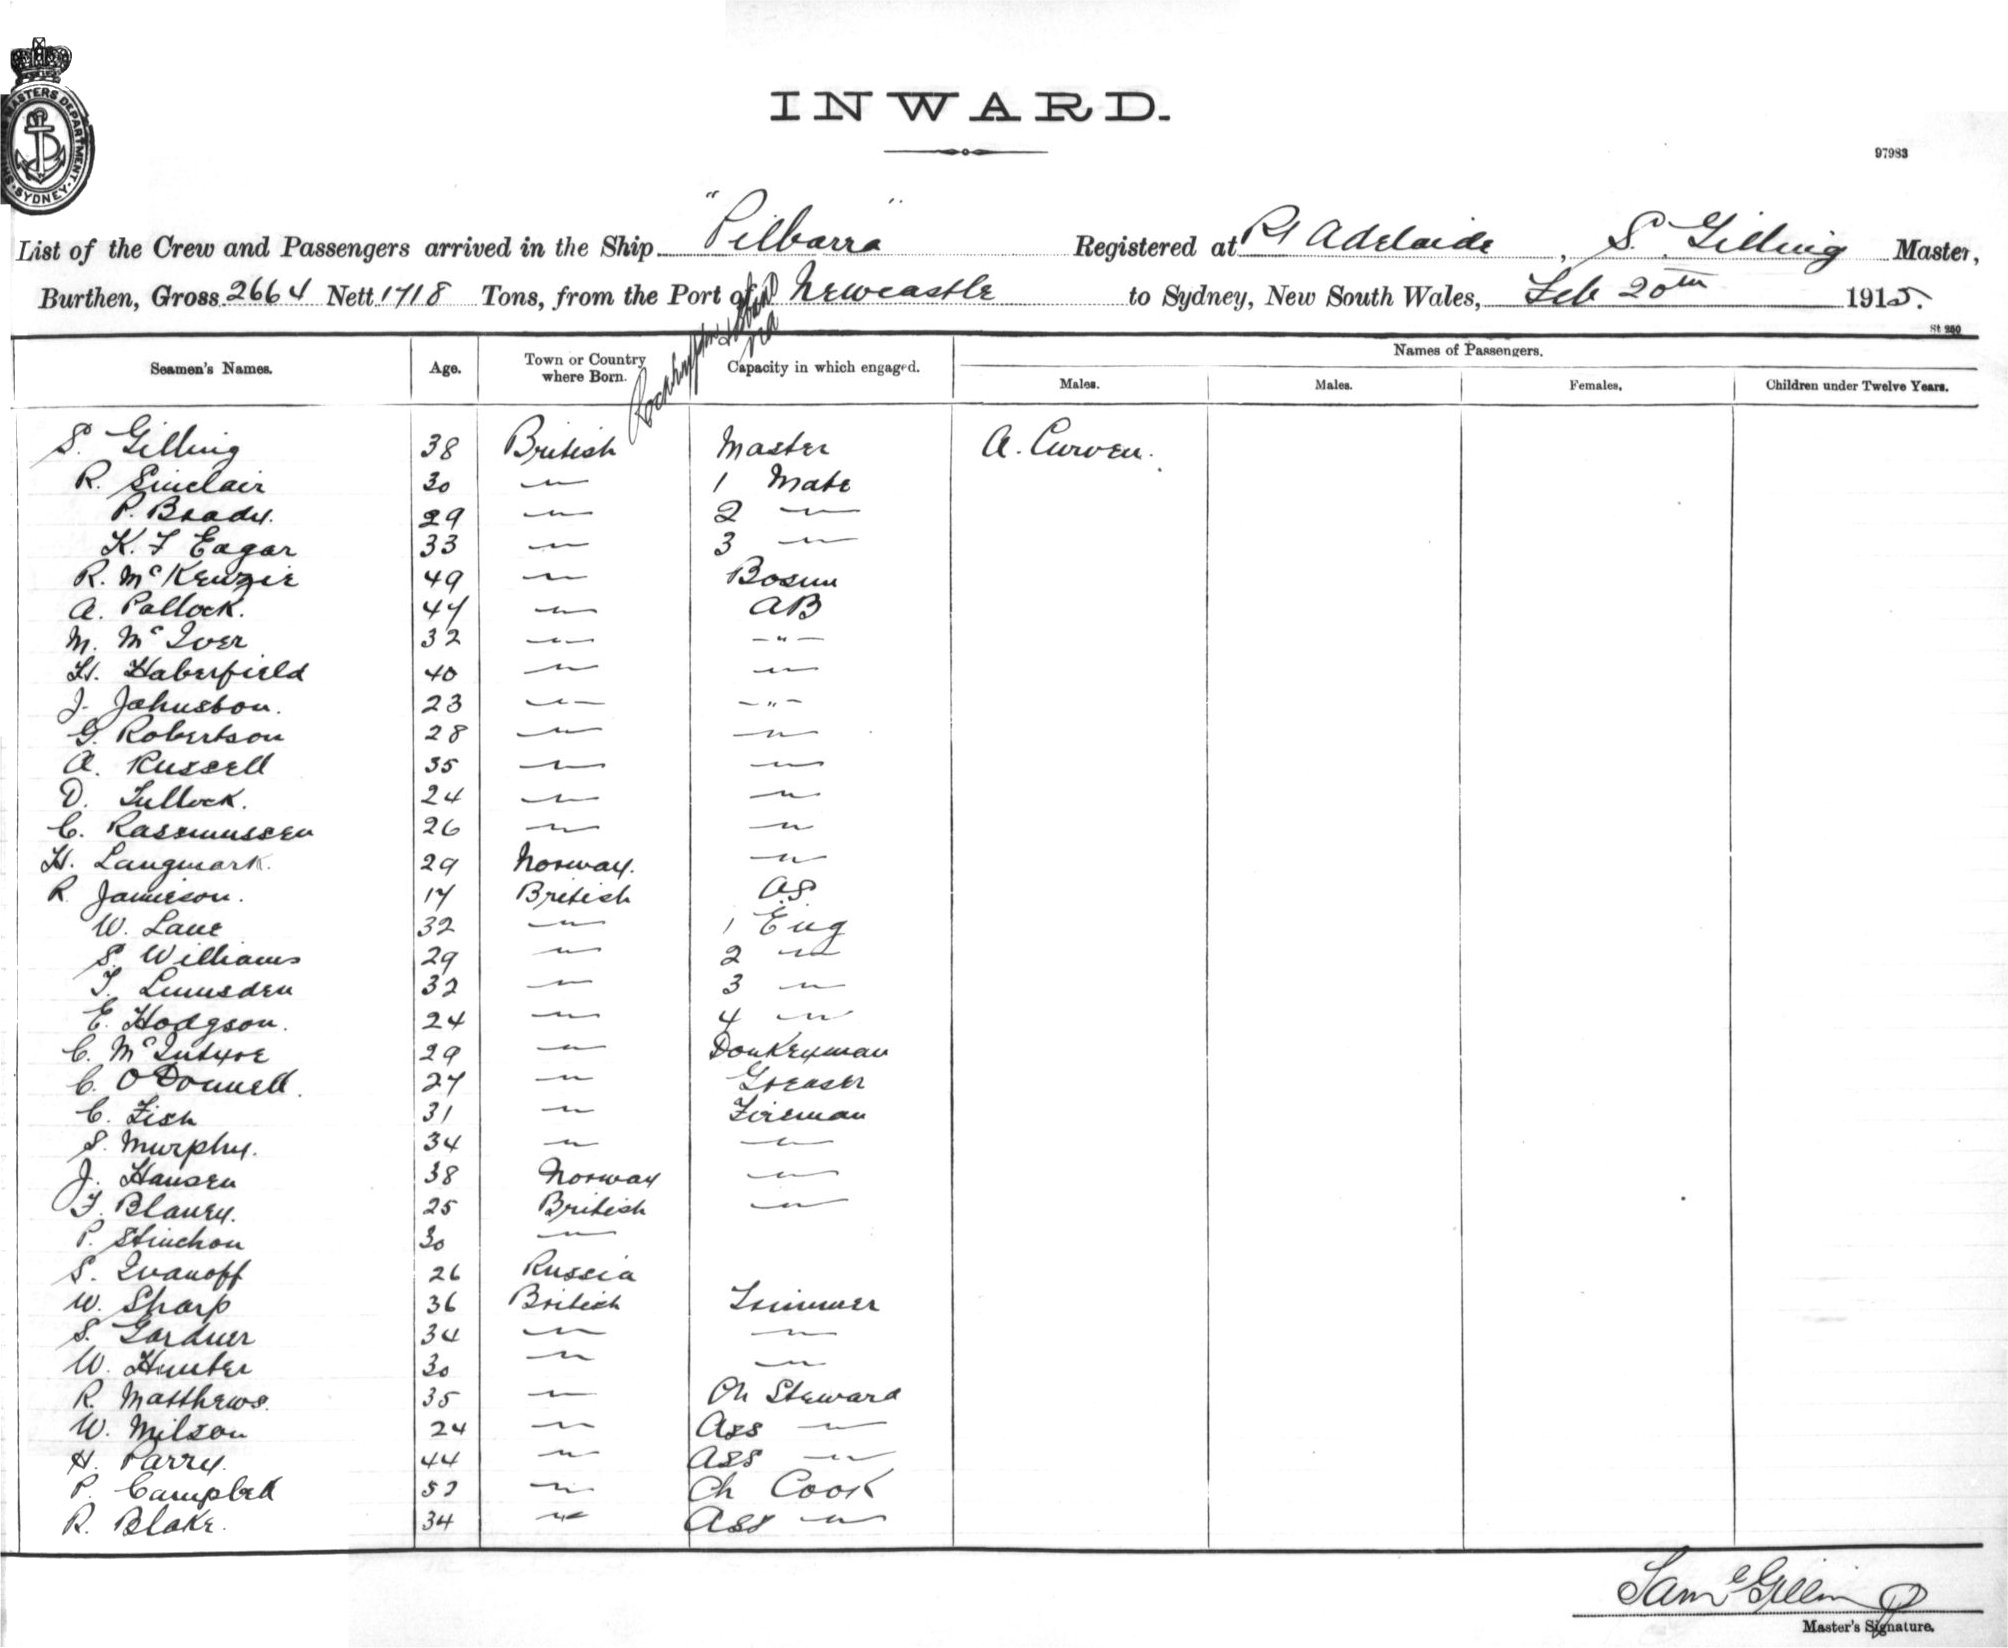 INWARD.
MASTERS DEPARTMENT
SYDNEY
97983
List of the Crew and Passengers arrived in the Ship "Pilbarra" Registered at Pt Adelaide, S. Gilling Master,
Burthen, Gross 2664 Nett 1718 Tons, from the Port of Newcastle to Sydney, New South Wales, Feb 20th 1915.
via
St 280
Seamen's Names. Age. Town or Country where Born. Capacity in which engaged. Names of Passengers.
Males. Males. Females. Children under Twelve Years.
S. Gilling 38 British Master A. Curven.
R. Sinclair 30 —"— 1 Mate
P. Brady. 29 —"— 2 —"—
K. F Eagar 33 —"— 3 —"—
R. McKenzie 49 —"— Bosun
A. Pollock. 47 —"— AB
M. McIver 32 —"— —"—
H. Haberfield 40 —"— —"—
J. Johnston. 23 —"— —"—
G. Robertson 28 —"— —"—
A. Russell 35 —"— —"—
D. Tullock. 24 —"— —"—
C. Rasmussen 26 —"— —"—
H. Langmark. 29 Norway. —"—
R. Jamieson. 17 British O.S.
W. Lane 32 —"— 1 Eng
S. Williams 29 —"— 2 —"—
T. Lumsden 32 —"— 3 —"—
E. Hodgson. 24 —"— 4 —"—
C. McIntyre 29 —"— Donkeyman
C. O'Donnell. 27 —"— Greaser
C. Fish 31 —"— Fireman
S. Murphy. 34 —"— —"—
J. Hansen 38 Norway —"—
F. Blaney. 25 British —"—
P. Stinchon 30 —"—
S. Ivanoff 26 Russia
W. Sharp 36 British Trimmer
S. Gardner 34 —"— —"—
W. Hunter 30 —"— —"—
R. Matthews. 35 —"— Ch Steward
W. Milson 24 —"— Ass —"—
H. Parry. 44 —"— Ass —"—
P. Campbell 52 —"— Ch Cook
R. Blake. 34 —"— Ass —"—
Saml Gilling
Master's Signature.